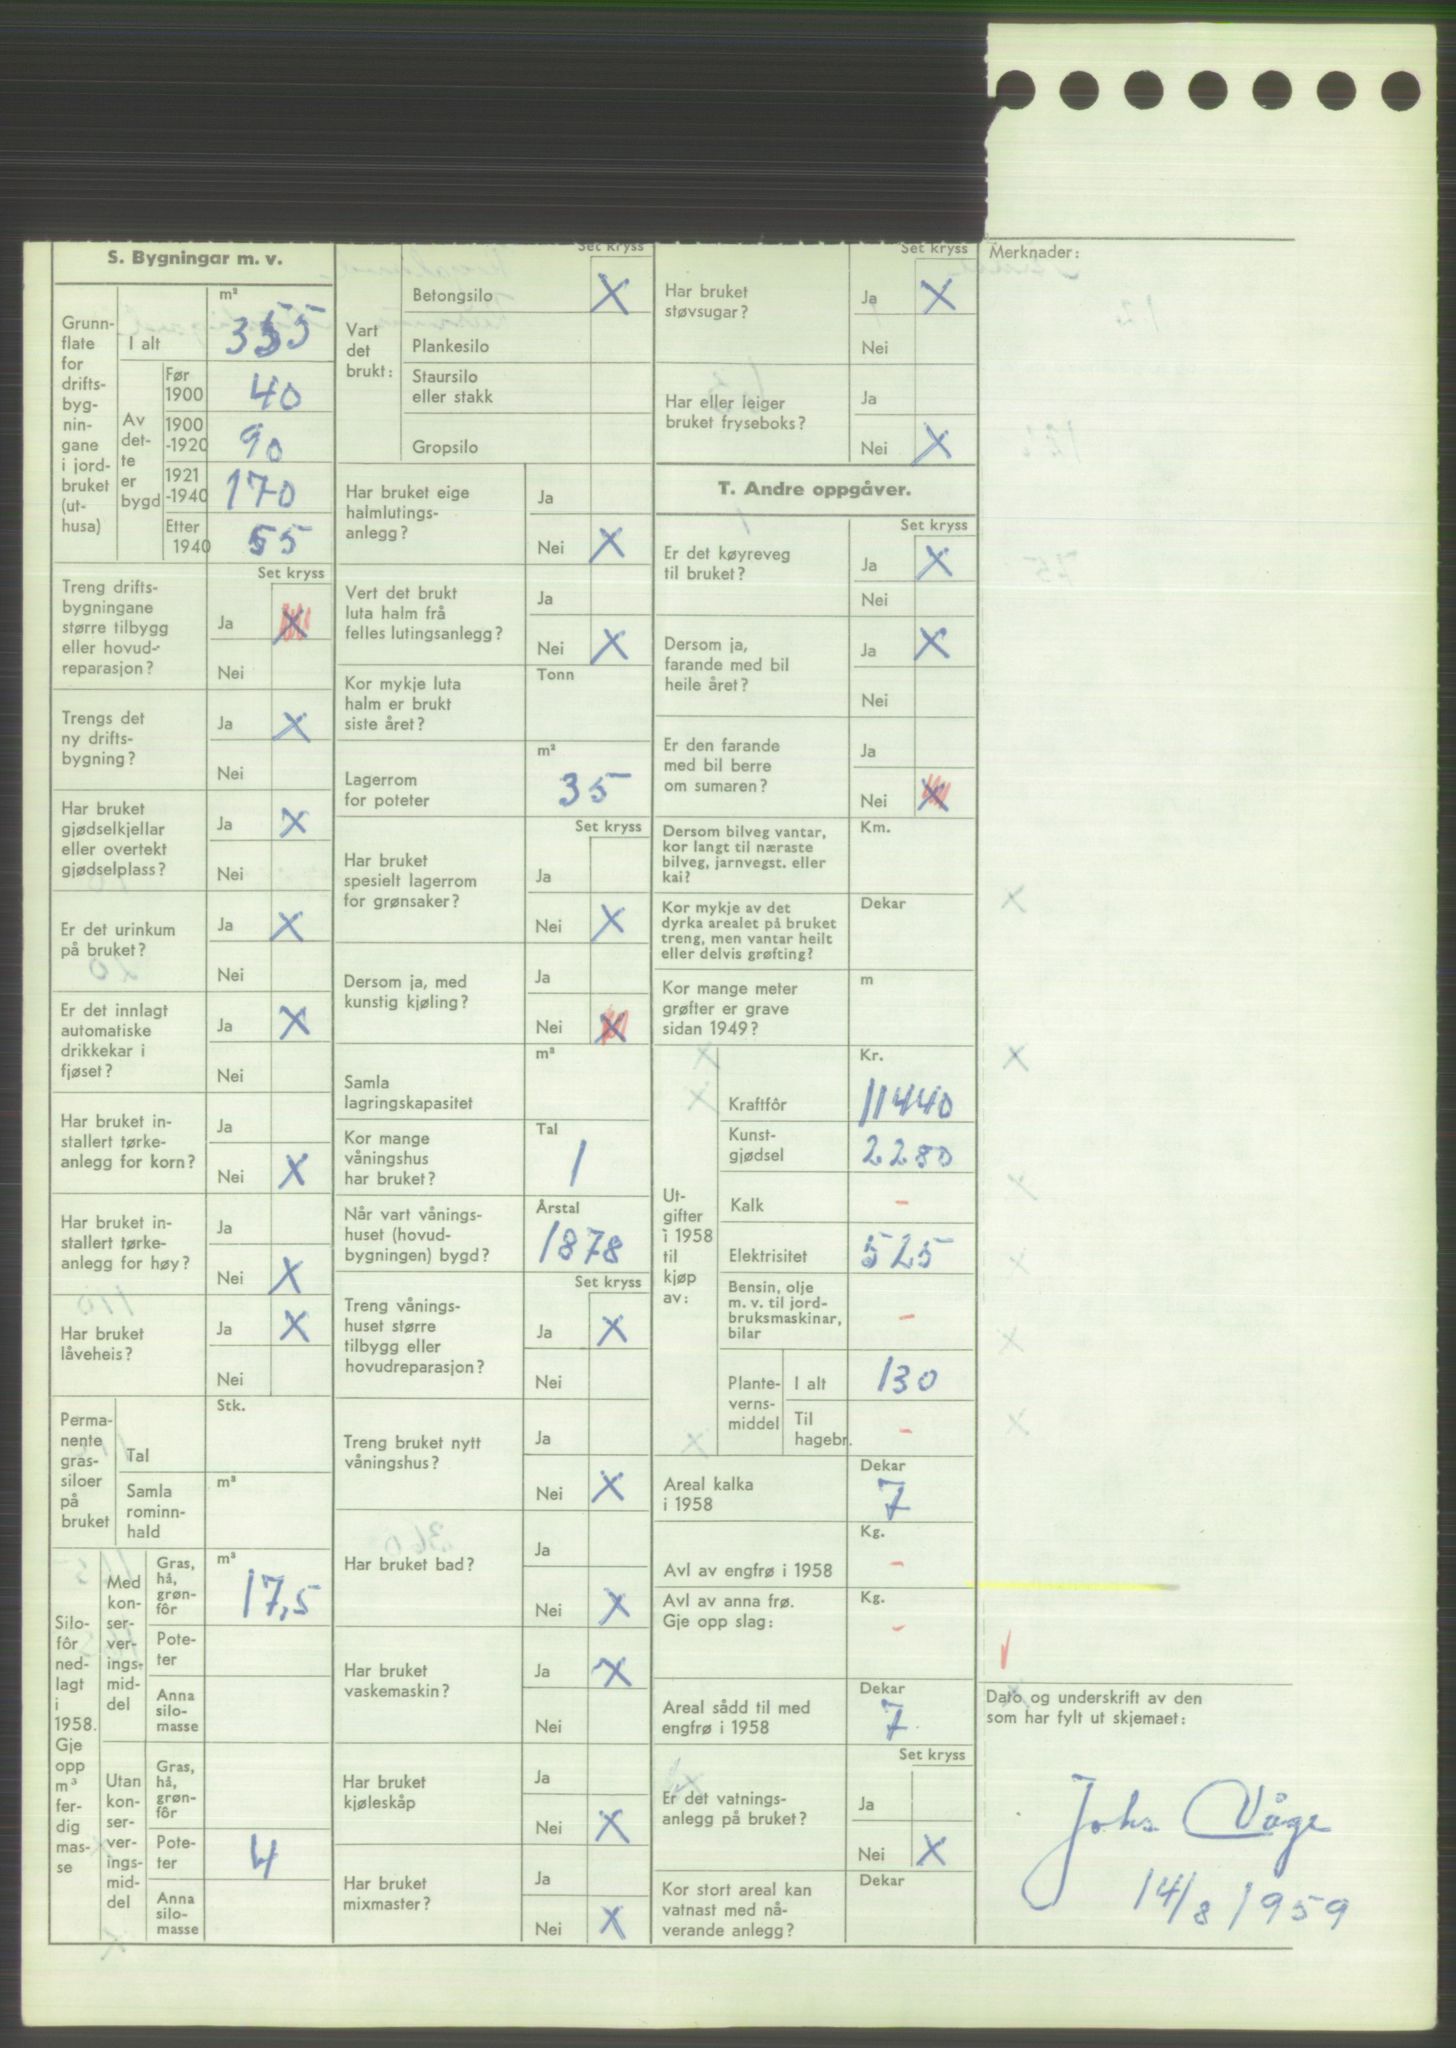 S. Bygningar m. v.
Grunn-
flate
for
drifts-
byg-
nin-
gane
i jord-
bruket
(ut-
husa)
I alt
m²
355
Av
det-
te
er
bygd
Før
1900
40
1900
-1920
90
1921
-1940
170
Etter
1940
55
Set kryss
Treng drifts-
bygningane
større tilbygg
eller hovud-
reparasjon?
Ja X
Nei
Trengs det
ny drifts-
bygning?
Ja X
Nei
Har bruket
gjødselkjellar
eller overtekt
gjødselplass?
Ja X
Nei
Er det urinkum
på bruket?
Ja X
Nei
Er det innlagt
automatiske
drikkekar i
fjøset?
Ja X
Nei
Har bruket in-
stallert tørke-
anlegg for korn?
Ja
Nei X
Har bruket in-
stallert tørke-
anlegg for høy?
Ja
Nei X
Har bruket
låveheis?
Ja X
Nei
Perma-
nente
gras-
siloer
på
bruket
Tal
Stk.
Samla
rominn-
hald
m³
Silo-
fôr
ned-
lagt
i
1958.
Gje
opp
m³
fer-
dig
mas-
se
Med
kon-
ser-
ver-
ings-
mid-
del
Gras,
hå,
grøn-
fôr
m³
17,5
Pote-
ter
Anna
silo-
masse
Utan
kon-
ser-
ver-
ings-
mid-
del
Gras,
hå,
grøn-
fôr
Pote-
ter
4
Anna
silo-
masse
Set kryss
Vart
det
brukt:
Betongsilo X
Plankesilo
Staursilo
eller stakk
Gropsilo
Har bruket eige
halmlutings-
anlegg?
Ja
Nei X
Vert det brukt
luta halm frå
felles lutingsanlegg?
Ja
Nei X
Kor mykje luta
halm er brukt
siste året?
Tonn
Lagerrom
for poteter
m²
35
Set kryss
Har bruket
spesielt lagerrom
for grønsaker?
Ja
Nei X
Dersom ja, med
kunstig kjøling?
Ja
Nei X
Samla
lagringskapasitet
m²
Kor mange
våningshus
har bruket?
Tal
1
Når vart vånings-
huset (hovud-
bygningen) bygd?
Årstal
1878
Set kryss
Treng vånings-
huset større
tilbygg eller
hovudreparasjon?
Ja X
Nei
Treng bruket nytt
våningshus?
Ja
Nei X
Har bruket bad?
Ja
Nei X
Har bruket
vaskemaskin?
Ja X
Nei
Har bruket
kjøleskåp
Ja
Nei X
Har bruket
mixmaster?
Ja
Nei X
Set kryss
Har bruket
støvsugar?
Ja X
Nei
Har eller leiger
bruket fryseboks?
Ja
Nei X
T. Andre oppgåver.
Set kryss
Er det køyreveg
til bruket?
Ja X
Nei
Dersom ja,
farande med bil
heile året?
Ja X
Nei
Er den farande
med bil berre
om sumaren?
Ja
Nei X
Dersom bilveg vantar,
kor langt til næraste
bilveg, jarnvegst. eller
kai?
Km.
Kor mykje av det
dyrka arealet på bruket
treng, men vantar heilt
eller delvis grøfting?
Dekar
Kor mange meter
grøfter er grave
sidan 1949?
m
Ut-
gifter
i 1958
til
kjøp
av:
Kr.
Kraftfôr
11440
Kunst-
gjødsel
2280
Kalk
-
Elektrisitet
525
Bensin, olje
m. v. til jord-
bruksmaskinar,
bilar
-
Plante-
verns-
middel
I alt
130
Til
hagebr.
-
Areal kalka
i 1958
Dekar
7
Avl av engfrø i 1958
Kg.
-
Avl av anna frø.
Gje opp slag:
Kg.
-
Areal sådd til med
engfrø i 1958
Dekar
7
Set kryss
Er det vatnings-
anlegg på bruket?
Ja
Nei X
Kor stort areal kan
vatnast med nå-
verande anlegg?
Dekar
Merknader:
Dato og underskrift av den
som har fylt ut skjemaet:
Johs Våge
14/8 1959